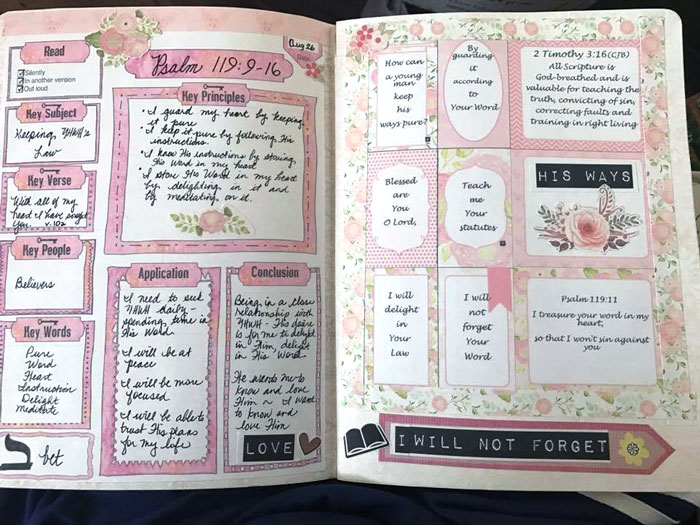 Aug 26
Date
Read
Silently
In another version
Out loud
Psalm 119:9-16
Key Subject
Keeping YHWH's
Law
Key Verse
With all of my
heart I have sought
You. v.10a
Key People
Believers
Key Words
Pure
Word
Heart
Instruction
Delight
meditate
ב bet
Key Principles
• I guard my heart by keeping
it pure
• I keep it pure by following His
instructions.
• I know His instructions by storing
His Word in my heart
• I store His Word in my heart
by delighting in it and
by meditating on it.
Application
I need to seek
YHWH daily -
spending time in
His Word
I will be at
peace
I will be more
focused
I will be able to
trust His plans
for my life
Conclusion
Being in a close
relationship with
YHWH - His desire
is for me to delight
in Him, delight
in His Word
He wants me to
know and love
Him ~ I want
to know and
love Him
LOVE
How can
a young
man
keep
his
ways pure?
By
guarding
it
according
to
Your Word
2 Timothy 3:16(CJB)
All Scripture is
God-breathed and is
valuable for teaching the
truth, convicting of sin,
correcting faults and
training in right living
Blessed
are
You
O Lord,
Teach
me
Your
statutes
HIS WAYS
I will
delight
in
Your
Law
I will
not
forget
Your
Word
Psalm 119:11
I treasure your word in my
heart,
so that I won't sin against
you
I WILL NOT FORGET